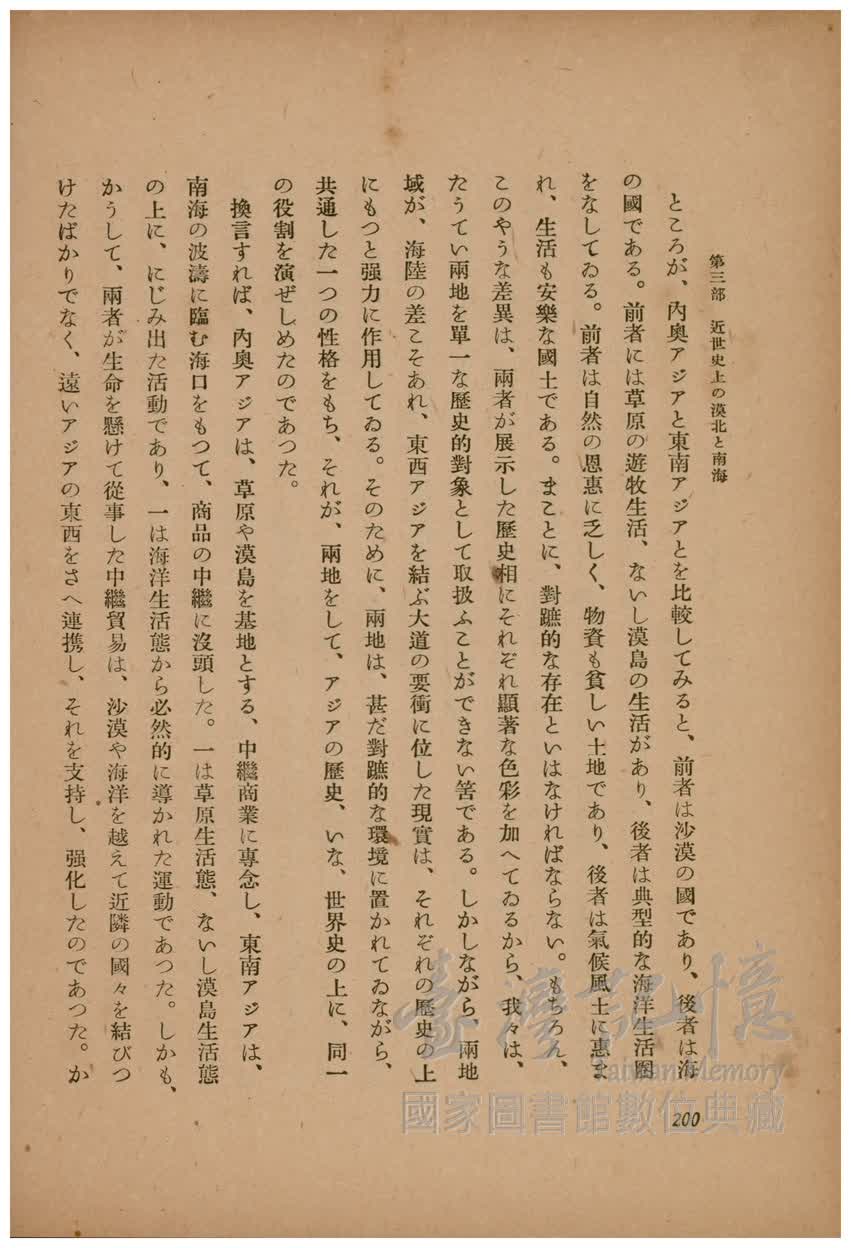 第三部　近世史上の漠北と南海
ところが、內奧アジアと東南アジアとを比較してみると、前者は沙漠の國であり、後者は海
の國である。前者には草原の遊牧生活、ないし漠島の生活があり、後者は典型的な海洋生活圈
をなしてゐる。前者は自然の恩惠に乏しく、物資も貧しい土地であり、後者は氣候風土に惠ま
れ、生活も安樂な國土である。まことに、對蹠的な存在といはなければならない。もちろん、
このやうな差異は、兩者が展示した歷史相にそれぞれ顯著な色彩を加へてゐるから、我々は、
たうてい兩地を單一な歷史的對象として取扱ふことができない筈である。しかしながら、兩地
域が、海陸の差こそあれ、東西アジアを結ぶ大道の要衝に位した現實は、それぞれの歷史の上
にもつと强力に作用してゐる。そのために、兩地は、甚だ對蹠的な環境に置かれてゐながら、
共通した一つの性格をもち、それが、兩地をして、アジアの歷史、いな、世界史の上に、同一
の役割を演ぜしめたのであつた。
換言すれば、內奧アジアは、草原や漠島を基地とする、中繼商業に專念し、東南アジアは、
南海の波濤に臨む海口をもつて、商品の中繼に沒頭した。一は草原生活態、ないし漠島生活態
の上に、にじみ出た活動であり、一は海洋生活態から必然的に導かれた運動であつた。しかも、
かうして、兩者が生命を懸けて從事した中繼貿易は、沙漠や海洋を越えて近隣の國々を結びつ
けたばかりでなく、遠いアジアの東西をさへ連携し、それを支持し、强化したのであつた。か
200
臺灣記憶
Taiwan Memory
國家圖書館數位典藏